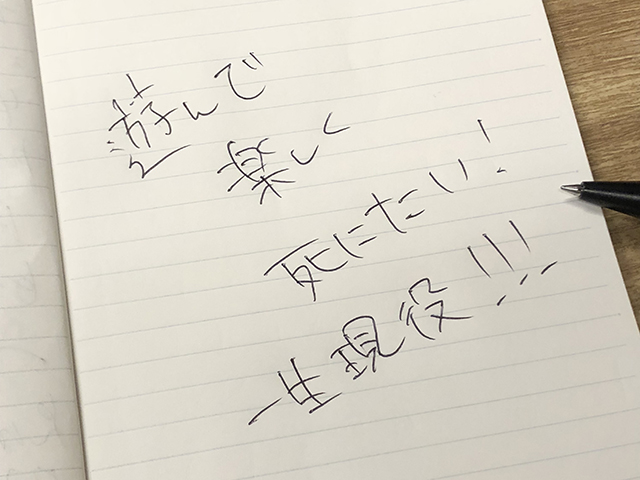 遊んで
楽しく
死にたい!
一生現役!!!